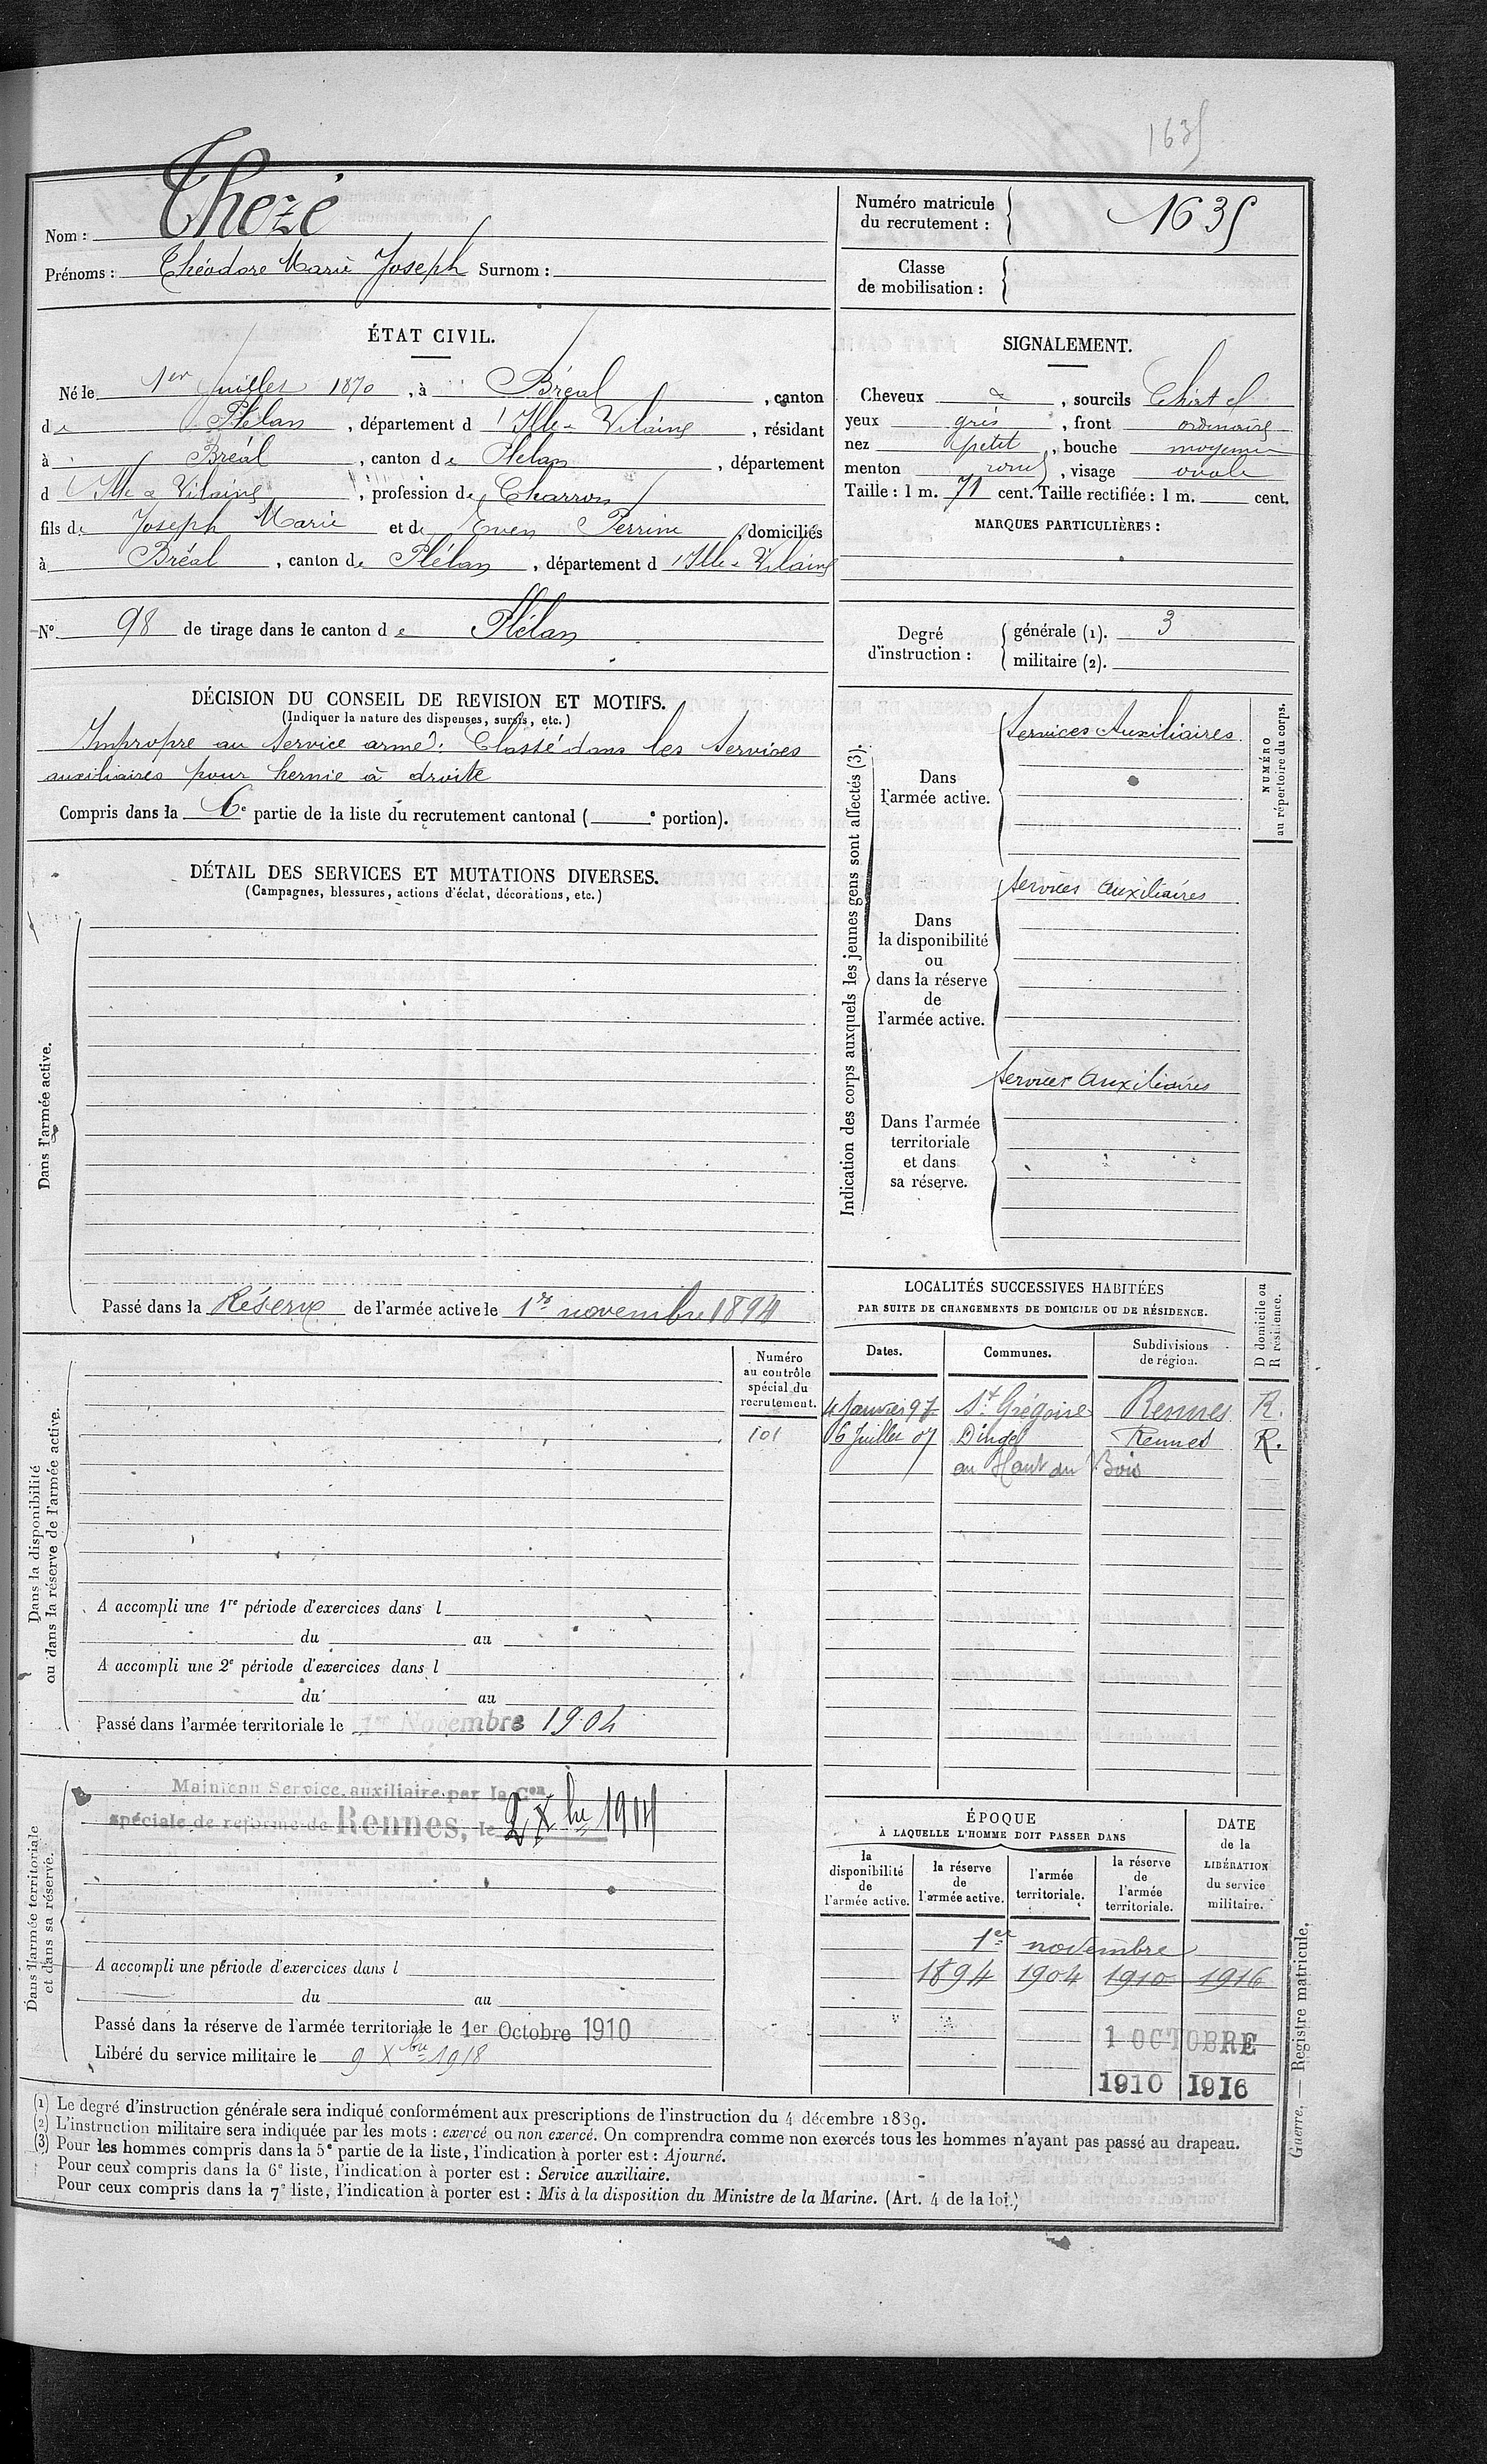 1635
Nom : Thezé
Prénoms : Théodore Marie Joseph Surnom :
Numéro matricule
du recrutement : 1635
Classe
de mobilisation :
ÉTAT CIVIL.
Né le 1er Juillet 1870, à Bréal, canton
de Plélan, département d'Ille & Vilaine, résidant
à Bréal, canton de Plélan, département
d'Ille & Vilaine, profession de Charron
fils de Joseph Marie et de Even Perrine, domiciliés
à Bréal, canton de Plélan, département d'Ille & Vilaine
N° 98 de tirage dans le canton de Plélan
SIGNALEMENT.
Cheveux &, sourcils Chat cl
yeux gris, front ordinaire
nez petit, bouche moyenne
menton rond, visage ovale
Taille : 1 m. 71 cent. Taille rectifiée : 1 m. cent.
MARQUES PARTICULIÈRES :
Degré
d'instruction :
générale (1). 3
militaire (2).
DÉCISION DU CONSEIL DE REVISION ET MOTIFS.
(Indiquer la nature des dispenses, sursis, etc.)
Impropre au service armé. Classé dans les services
auxiliaires pour hernie à droite
Compris dans la 6e partie de la liste du recrutement cantonal ( e portion).
DÉTAIL DES SERVICES ET MUTATIONS DIVERSES.
(Campagnes, blessures, actions d'éclat, décorations, etc.)
Dans l'armée active.
Passé dans la Réserve de l'armée active le 1er novembre 1894
Indication des corps auxquels les jeunes gens sont affectés (3).
Dans
l'armée active.
Services Auxiliaires
NUMÉRO
au répertoire du corps.
Dans
la disponibilité
ou
dans la réserve
de
l'armée active.
Services auxiliaires
Dans l'armée
territoriale
et dans
sa réserve.
Services Auxiliaires
LOCALITÉS SUCCESSIVES HABITÉES
PAR SUITE DE CHANGEMENTS DE DOMICILE OU DE RÉSIDENCE.
D domicile ou
R résidence.
Dates. Communes. Subdivisions
de région.
4 Janvier 97 St Grégoire Rennes R.
06 Juillet 07 Dingé Rennes R.
au Haut du Bois
Dans la disponibilité
ou dans la réserve de l'armée active.
Numéro
au contrôle
spécial du
recrutement.
101
A accompli une 1re période d'exercices dans l
du au
A accompli une 2e période d'exercices dans l
du au
Passé dans l'armée territoriale le 1er Novembre 1904
Dans l'armée territoriale
et dans sa réserve.
Maintenu Service auxiliaire par la Con
spéciale de réforme de Rennes, le 2 Xbre 1914
A accompli une période d'exercices dans l
du au
Passé dans la réserve de l'armée territoriale le 1er Octobre 1910
Libéré du service militaire le 9 Xbre 1918
ÉPOQUE
À LAQUELLE L'HOMME DOIT PASSER DANS
DATE
de la
LIBÉRATION
du service
militaire.
la
disponibilité
de
l'armée active.
la réserve
de
l'armée active.
l'armée
territoriale.
la réserve
de
l'armée
territoriale.
1er novembre
1894 1904 1910 1916
1 OCTOBRE
1910 1916
(1) Le degré d'instruction générale sera indiqué conformément aux prescriptions de l'instruction du 4 décembre 1889.
(2) L'instruction militaire sera indiquée par les mots : exercé ou non exercé. On comprendra comme non exercés tous les hommes n'ayant pas passé au drapeau.
(3) Pour les hommes compris dans la 5e partie de la liste, l'indication à porter est : Ajourné.
Pour ceux compris dans la 6e liste, l'indication à porter est : Service auxiliaire.
Pour ceux compris dans la 7e liste, l'indication à porter est : Mis à la disposition du Ministre de la Marine. (Art. 4 de la loi.)
Guerre. — Registre matricule.